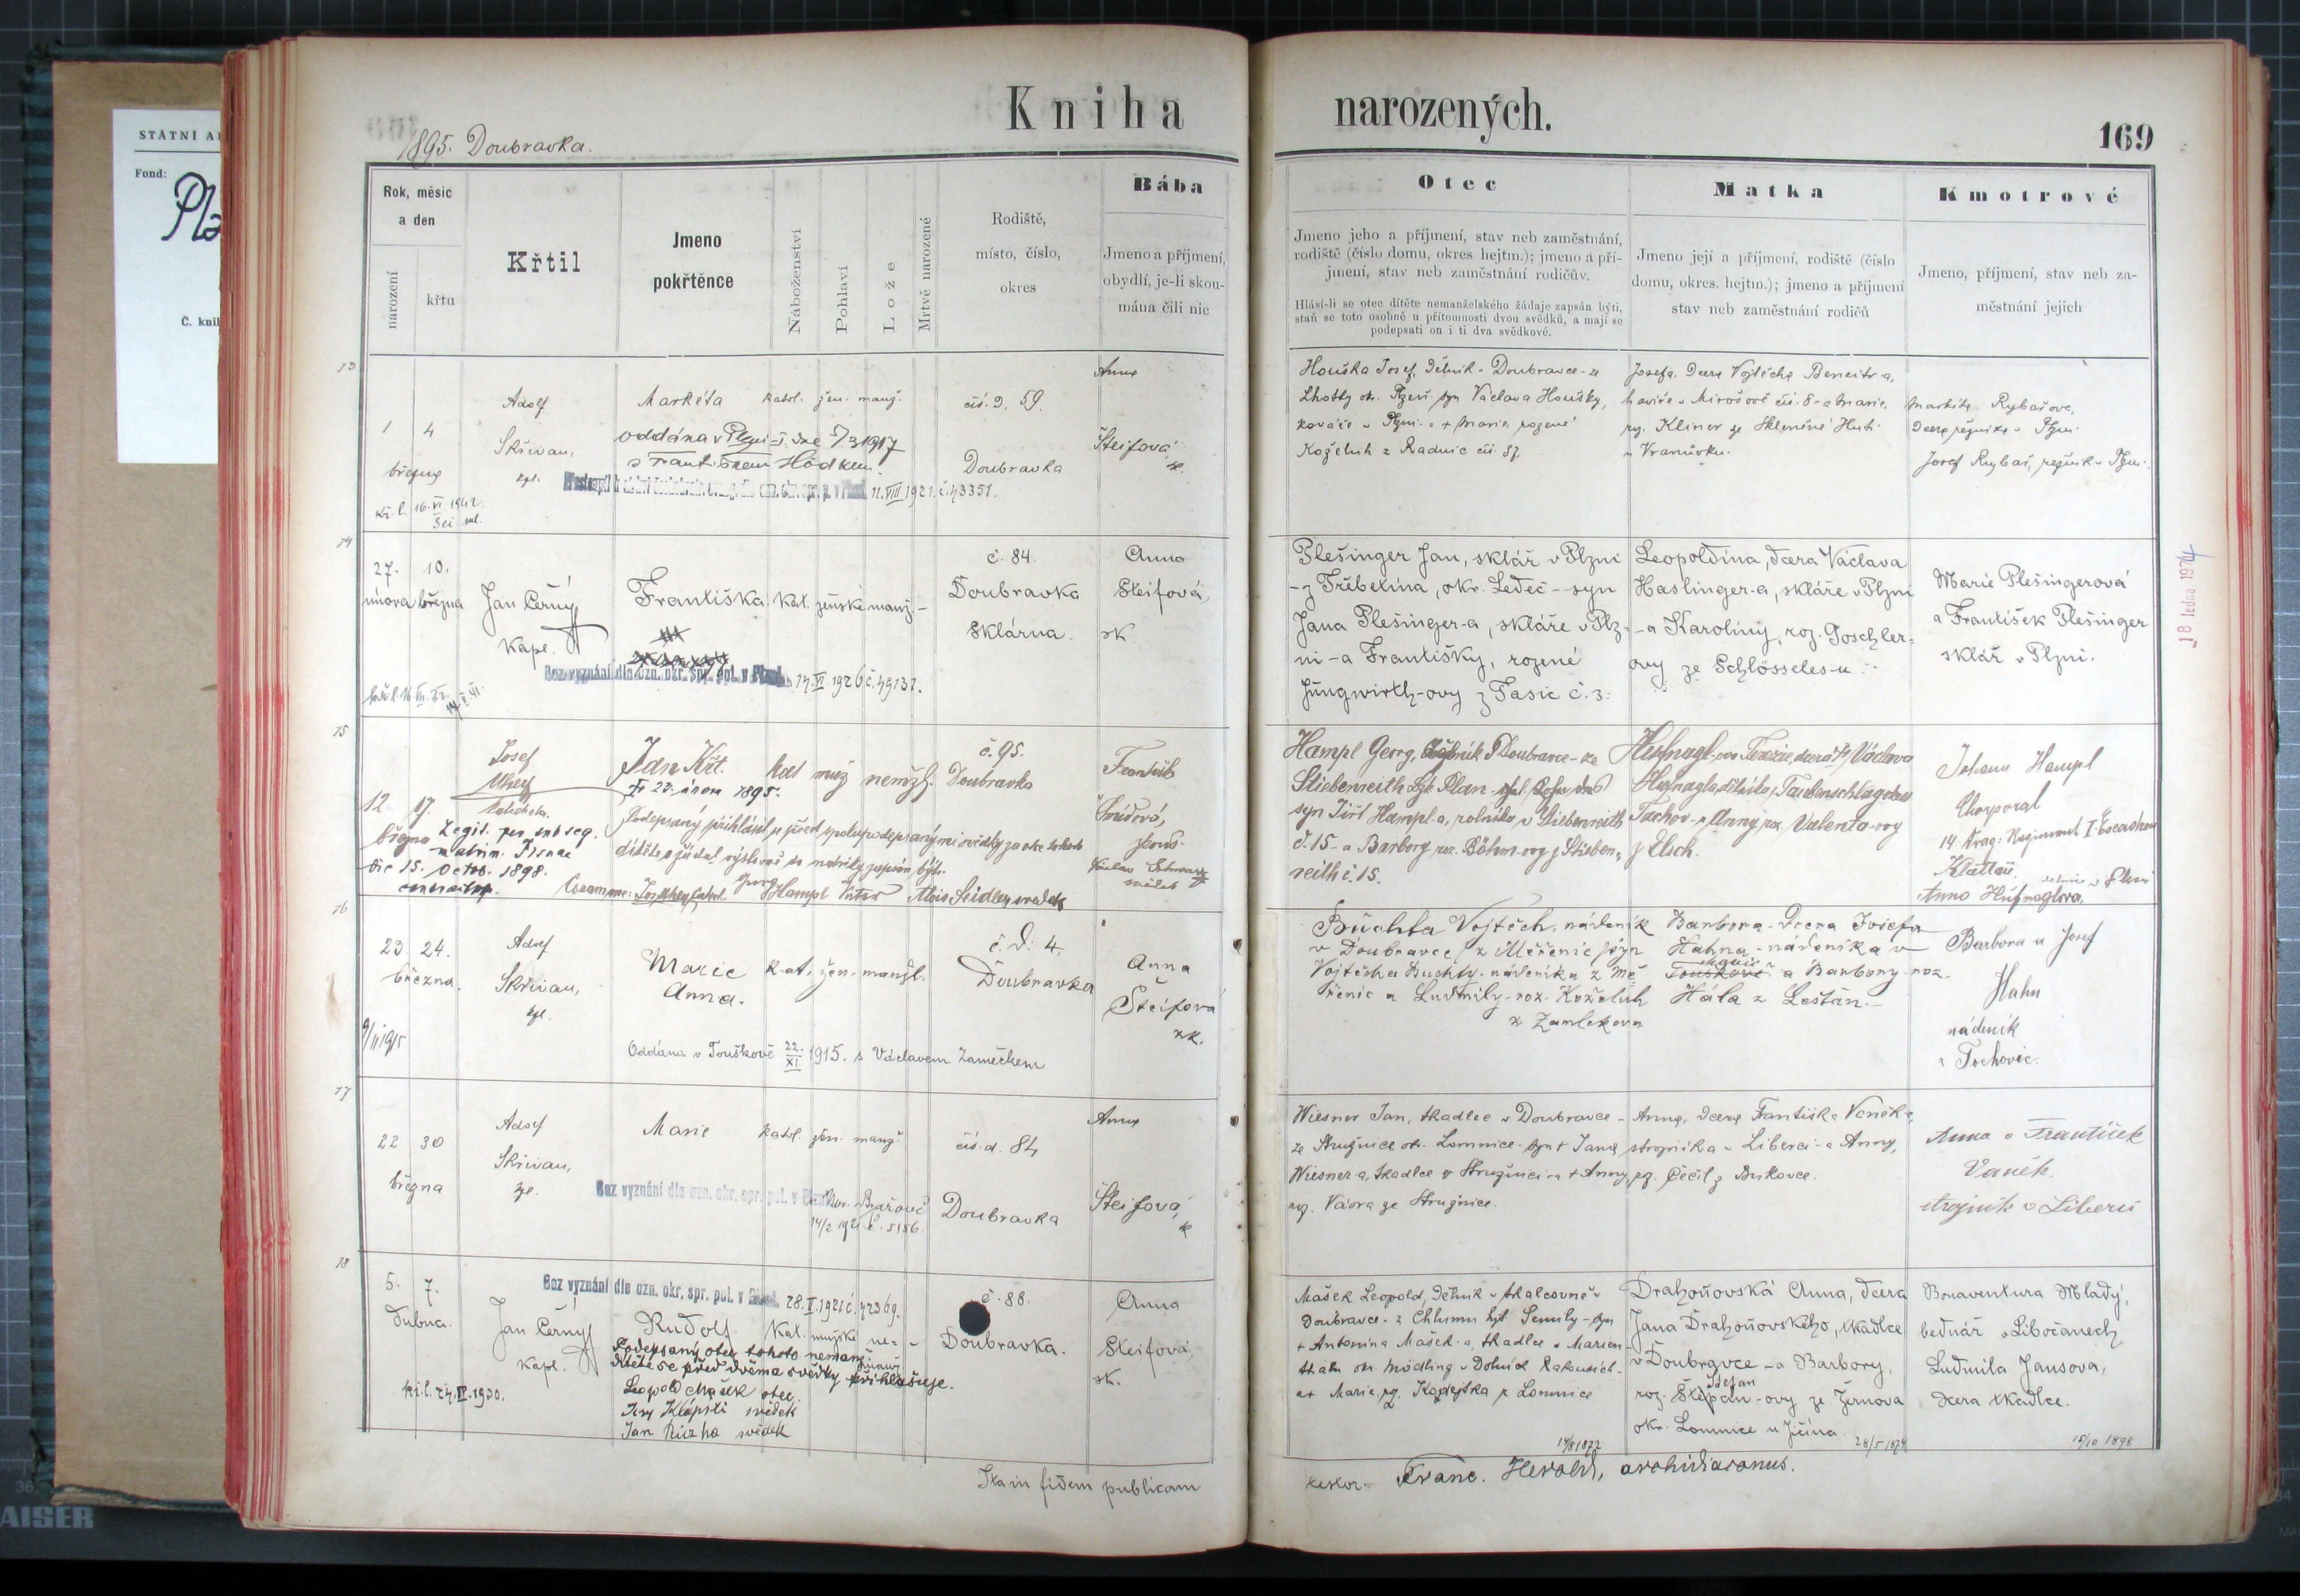 STÁTNÍ A
Fond:
Pla
Č. knih
Kniha narozených.
169
1895. Doubravka.
Rok, měsíc
a den
narození
křtu
Křtil
Jmeno
pokřtěnce
Náboženství
Pohlaví
Lože
Mrtvě narozené
Rodiště,
místo, číslo,
okres
Bába
Jmeno a příjmení,
obydlí, je-li skou-
mána čili nic
Otec
Jmeno jeho a příjmení, stav neb zaměstnání,
rodiště (číslo domu, okres hejtm.); jmeno a pří-
jmení, stav neb zaměstnání rodičův.
Hlásí-li se otec dítěte nemanželského žádaje zapsán býti,
staň se toto osobně u přítomnosti dvou svědků, a mají se
podepsati on i ti dva svědkové.
Matka
Jmeno její a příjmení, rodiště (číslo
domu, okres. hejtm.); jmeno a příjmení
stav neb zaměstnání rodičů
Kmotrové
Jmeno, příjmení, stav neb za-
městnání jejich
13
1 4
března
Kř. l. 16. VI. 1942.
Adolf
Skřivan,
kpl.
Markéta
katol. žen. manž.
oddána v Plzni - I. dne 5/3 1917
s Františkem Hödkem.
11. VIII 1921. č. 43351.
čís. d. 59.
Doubravka
Anna
Šteifová,
Houška Josef, dělník v Doubravce - ze
Lhotky ok. Plzeň - syn Václava Houšky,
kováře v Plzni - a + Marie, rozené
Koželuh z Radnic čís. 87.
Josefa, dcera Vojtěcha
havíře v Mirošově čís. 8 - a Marie,
roz. Kliner ze Skleněné Huti
u Vranůvku.
Markéta Rybářova,
dcera řezníka v Plzni.
Josef Rybář, řezník v Plzni.
14
27. 10.
února března
Jan Černý
kapl.
Františka. kat. ženské manž. -
Bez vyznání dle ozn. okr. spr. pol. v Plzni 14. VI. 1926 č. 49137.
č. 84.
Doubravka
Sklárna.
Anna
Steifová
sk.
Plešinger Jan, sklář v Plzni
- z Třebětína, okr. Ledeč - syn
Jana Plešinger-a, skláře v Plz-
ni - a Františky, rozené
Jungwirth-ovy z Tasic č. 3.
Leopoldina, dcera Václava
Haslinger-a, skláře v Plzni
- a Karolíny, roz. Poschler-
ovy ze Schlösseles-u
Marie Plešingerová
a František Plešinger
sklář v Plzni.
18 ledna 1974
15
12 17.
března
Josef
Uhey
katecheta.
Legit. per subseq.
matrim. Pisnae
die 15. Octob. 1898.
Jan Křt.
† 23. února 1895.
kat muž nemžl.
Podepsaný přihlásil se před spolupodepsanými svědky za otce tohoto
dítěte a žádal výslovně do matriky zapsán býti.
Georg Hampl Vater Alois Seidler, svědek
č. 95.
Doubravka
Františka
zkouš.
Hampl Georg, dělník v Doubravce - ze
Stiebenreith
syn Jiří Hampl-a, rolníka v Stiebenreith
č. 15 - a Barbory, roz. Böhm-ovy z Stieben-
reith č. 15.
Hufnagl-ova Terezie, dcera Václava
Tachov - a Anny roz. Valenta-ovy
z Elsch.
Johann Hampl
Corporal
14. Drag. Regiment I. Escadron
Klattau.
Anna Hufnaglova.
16
23. 24.
března.
Adolf
Skřivan,
kpl.
Marie
Anna.
kat. žen. manžl.
Oddána v Touškově 22./XI. 1915. s Václavem Zamečkem
č. d. 4.
Doubravka
Anna
Šteifová
zk.
Buchta Vojtěch, nádeník
v Doubravce, z Měřenic syn
Vojtěcha Buchty, nádeníka z Mě-
řenic a Ludmily roz. Koželuh
z Zamlekova
Barbora, dcera Josefa
Hahna - nádeníka v
Touškově a Barbory roz.
Hála z Leštan. -
Barbora a Josef
Hahn
nádeník
z Tochovic.
17
22 30
března
Adolf
Skřivan,
kpl.
Marie
katol. žen. manž.
Bez vyznání dle ozn. okr. spr. pol. v
14/2 1921 č. 5156.
čís. d. 84
Doubravka
Anna
Šteifová,
Wiesner Jan, tkadlec v Doubravce -
ze Stružnice ok. Lomnice - syn + Jana
Wiesner-a, tkadlce v Stružnici - a + Anny,
roz. Vávra ze Stružnice.
Anna, dcera Františka Vaněk-a,
strojníka v Liberci - a Anny,
roz. Čečil z Bukovce.
Anna a František
Vaněk,
strojník v Liberci
18
5. 7.
dubna.
kř. l. 24. IV. 1920.
Jan Černý
kapl.
Bez vyznání dle ozn. okr. spr. pol. v Plzni. 28. I. 1921 č. 42369.
Rudolf. kat. mužské ne- -
Podepsaný otec tohoto nemanž.
dítěte se před dvěma svědky přihlašuje.
Leopold Mašek otec.
svědek
Jan Růžha svědek
č. 88.
Doubravka.
Anna
Steifová,
sk.
Mašek Leopold, dělník v tkalcovně v
Doubravce - z Chlumu hjt. Semily - syn
+ Antonína Mašek-a, tkadlce v Marien-
thalu ok. Mödling v Dolních Rakousích -
a + Marie, roz. Kodejška z Lomnice
14/8 1872
Drahoňovská Anna, dcera
Jana Drahoňovského, tkadlce
v Doubravce - a Barbory,
roz. Štěpán-ovy ze Žernova
okr. Lomnice u Jičína.
28/5 1874
Bonaventura Mladý,
bednář v Libočanech
Ludmila Jansova,
dcera tkadlce.
15/10 1898
Ita in fidem publicam
testor. Franc. Herold, archidiaconus.